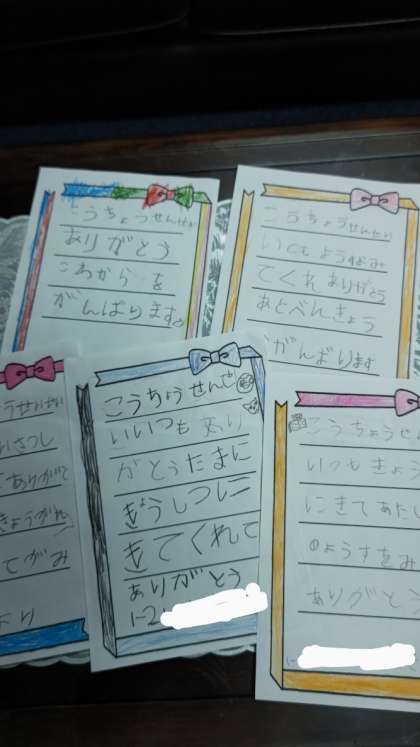 こうちょうせんせい
ありがとう
これから を
がんばります。
こうちょうせんせい
いつもようすをみ
てくれありがとう
あとべんきょう
がんばります
こうちょうせんせ
いいつも あり
がとうたまに
きょうしつに
きてくれて
ありがとう
1-2
こうちょうせん
いつもきょう
にきてあたし
のようすをみ
ありがとう
うせんせい
いさつし
ありがと
きょうがん
てがみ
より